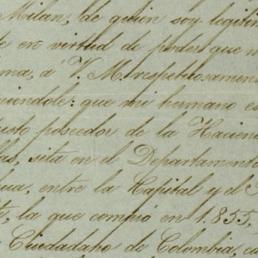 Milan, de quien soy legitim
te en virtud de poder que m
ma, a V. M. respetuosamen
ciendole: que mi hermano e
justo poseedor de la Hacien
las, sita en el Departament
ua, entre la Capital y el
te, la que compró en 1855,
Ciudadano de Colombia, cu